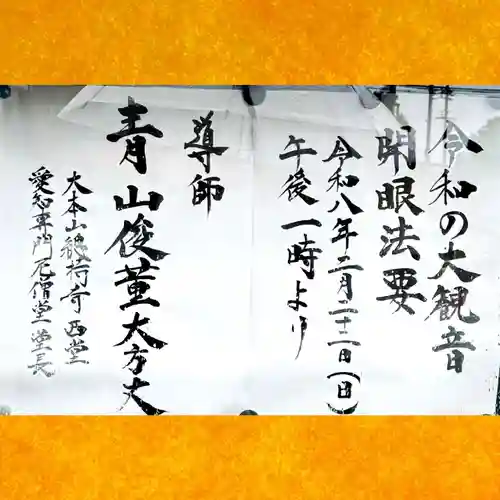 令和の大観音
開眼法要
令和八年二月二十二日(日)
午後一時より
導師
青山俊董大方丈
大本山總持寺西堂
愛知専門尼僧堂堂長